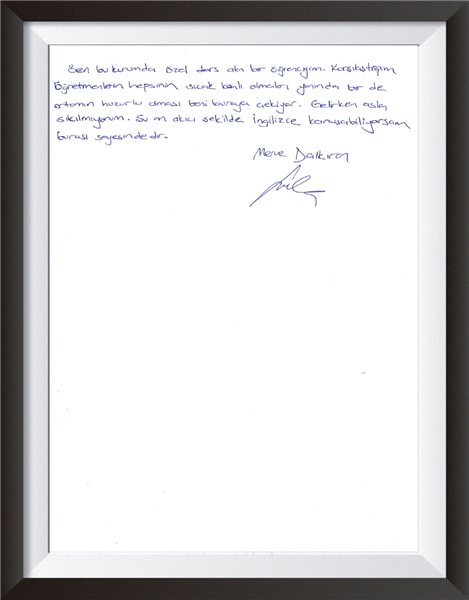 Ben bu kurumda özel ders alan bir öğrenciyim. Karşılaştığım
öğretmenlerin hepsinin sıcak kanlı olmaları yanında bir de
ortamın huzurlu olması beni buraya çekiyor. Gelirken asla
sıkılmıyorum. Şu an akıcı şekilde İngilizce konuşabiliyorsam
burası sayesindedir.
Merve Dalkıran